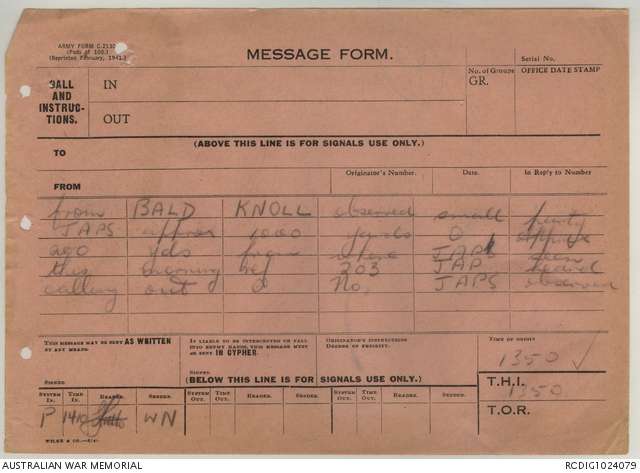 ARMY FORM C.2130
(Pads of 100.)
(Reprinted February, 1942.)
MESSAGE FORM.
Serial No.
CALL AND INSTRUCTIONS.
IN
OUT
No. of Groups
GR.
OFFICE DATE STAMP
(ABOVE THIS LINE IS FOR SIGNALS USE ONLY.)
TO
FROM
Originator's Number.
Date.
In Reply to Number
from BALD KNOLL observed small party
JAPS approx 1000 yards
200 yds from where JAP seen
this morning ref 203 JAP heard
calling out No. JAPS observed
THIS MESSAGE MAY BE SENT AS WRITTEN BY ANY MEANS.
IF LIABLE TO BE INTERCEPTED OR FALL INTO ENEMY HANDS, THIS MESSAGE MUST BE SENT IN CYPHER.
ORIGINATOR'S INSTRUCTIONS
DEGREE OF PRIORITY.
TIME OF ORIGIN
1350
SIGNED.
SIGNED.
(BELOW THIS LINE IS FOR SIGNALS USE ONLY.)
T.H.I.
1350
SYSTEM IN. TIME IN. READER. SENDER. SYSTEM OUT. TIME OUT. READER. SENDER. SYSTEM OUT. TIME OUT. READER. SENDER.
T.O.R.
P WN
AUSTRALIAN WAR MEMORIAL
RCDIG1024079